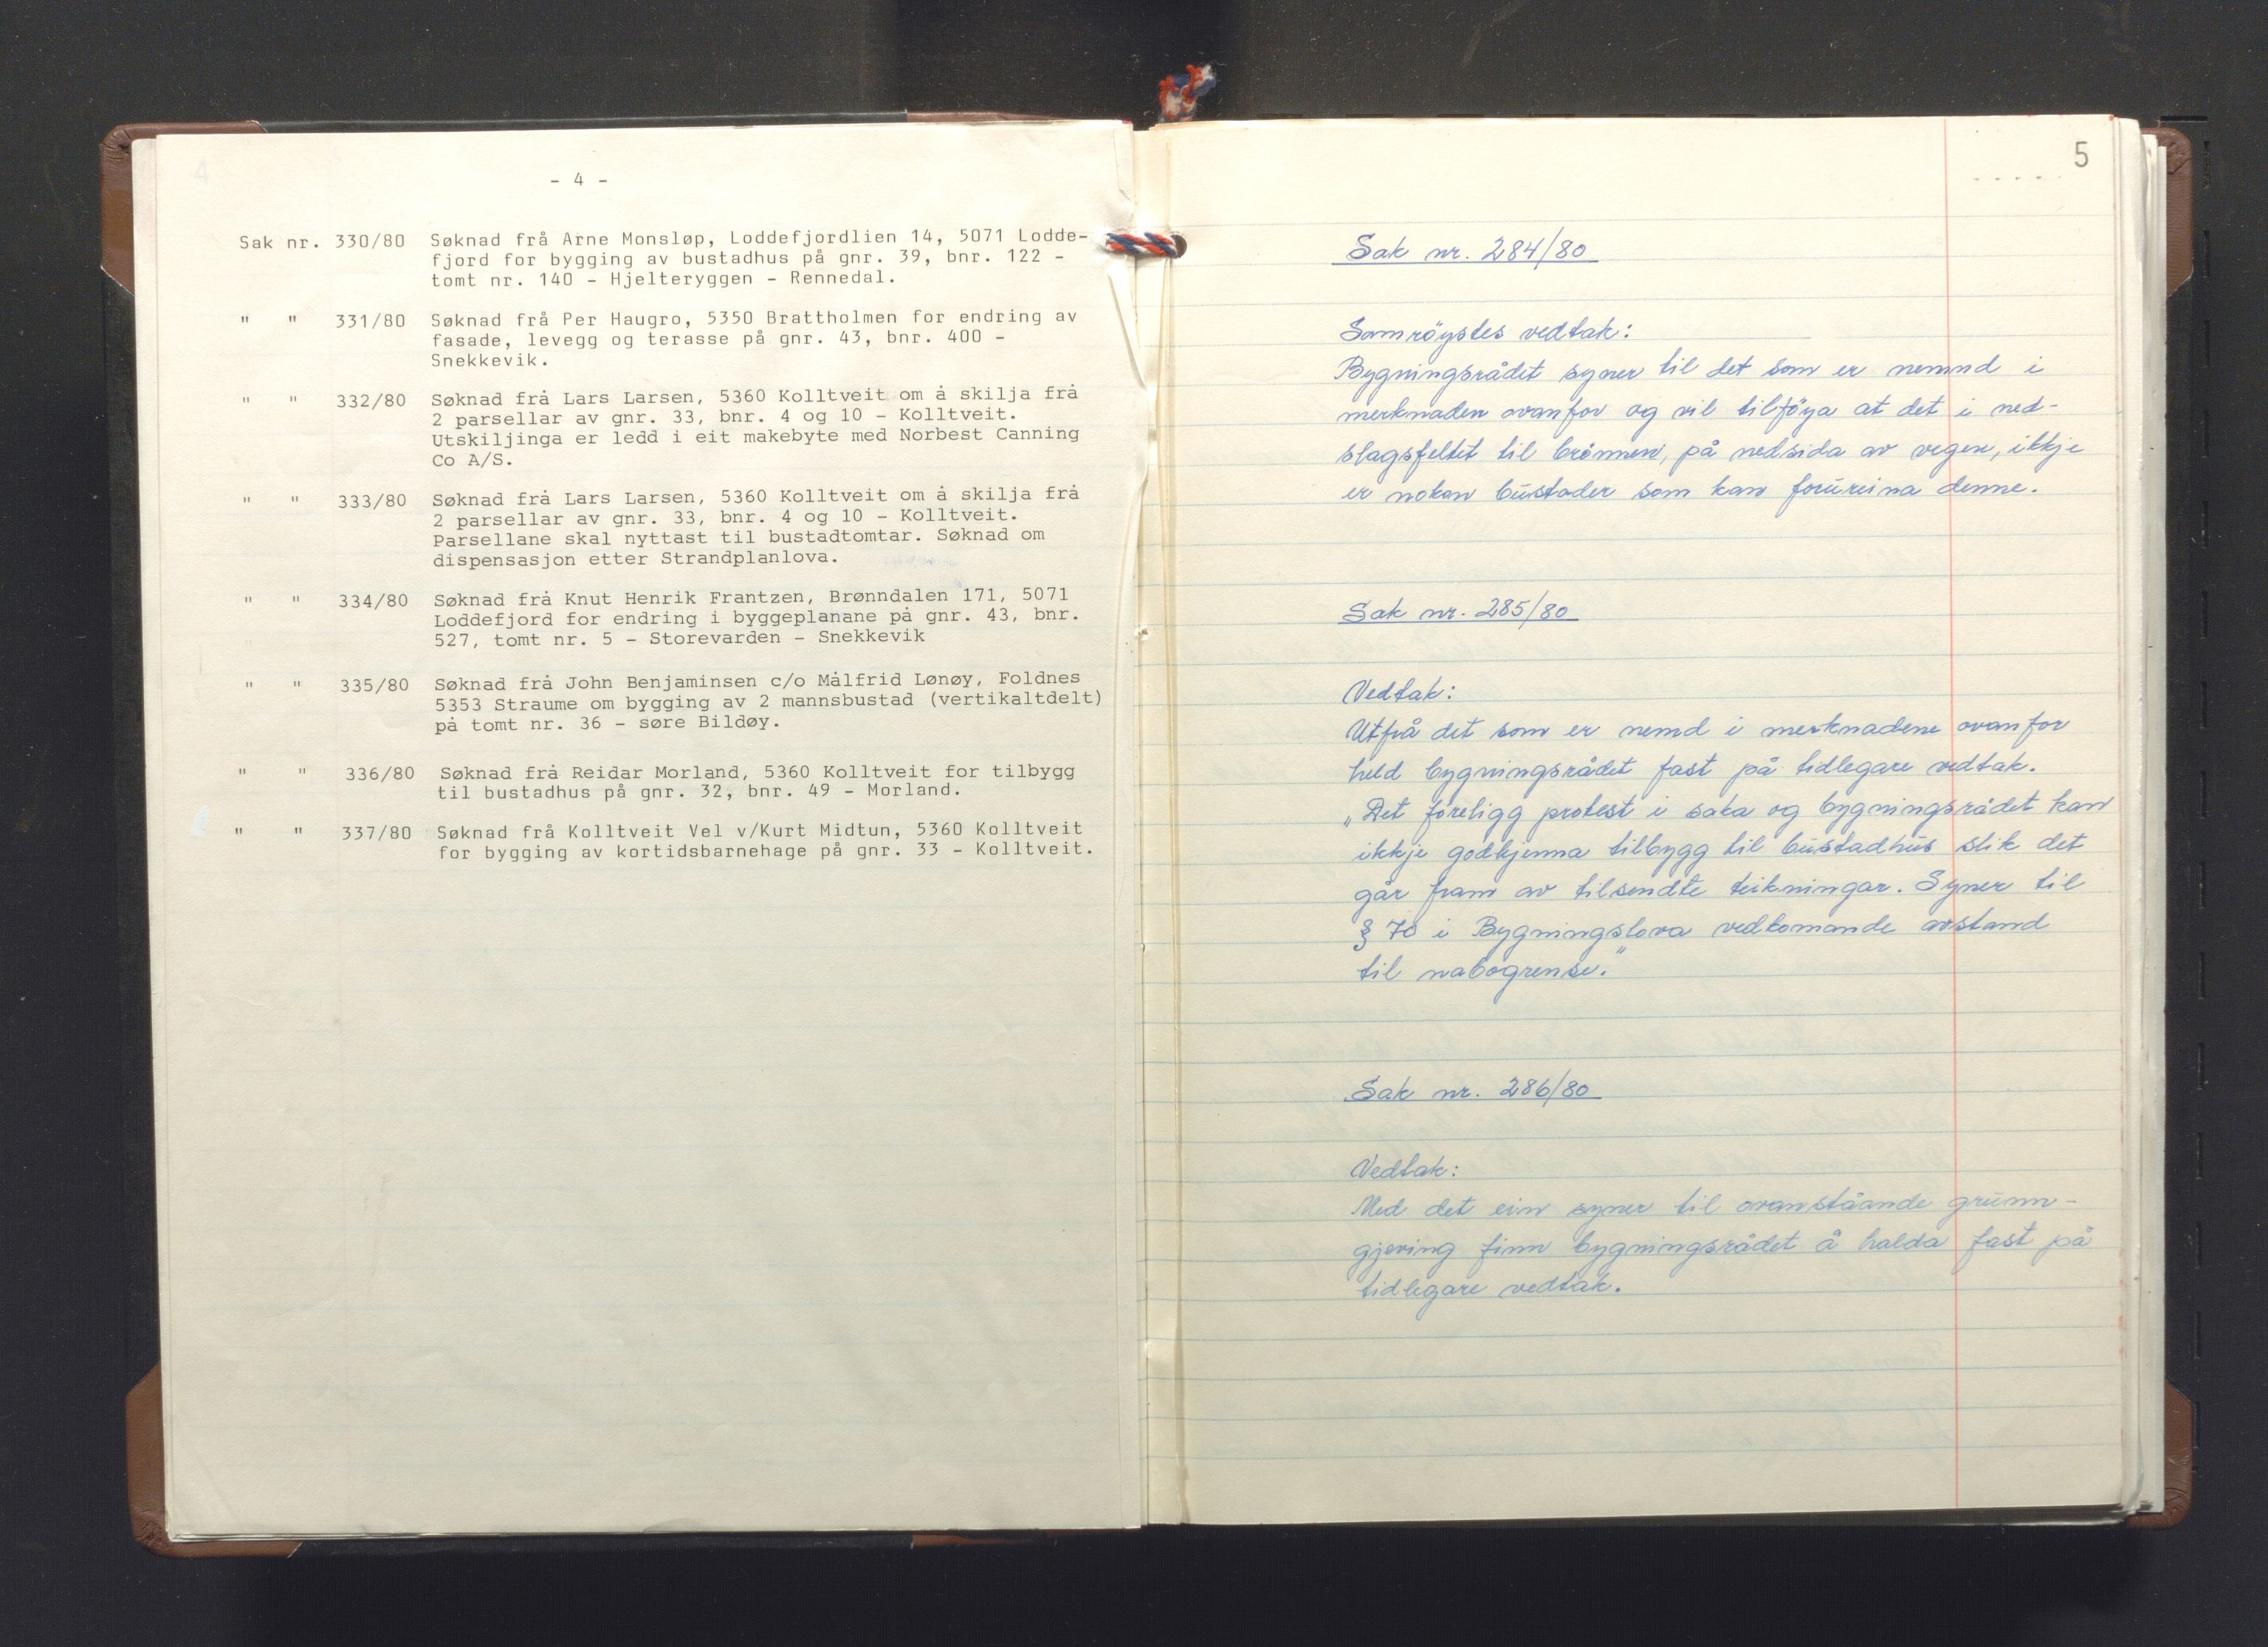 - 4 -
Sak nr. 330/80 Søknad frå Arne Monsløp, Loddefjordlien 14, 5071 Lodde-
fjord for bygging av bustadhus på gnr. 39, bnr. 122 -
tomt nr. 140 - Hjelteryggen - Rennedal.
" " 331/80 Søknad frå Per Haugro, 5350 Brattholmen for endring av
fasade, levegg og terasse på gnr. 43, bnr. 400 -
Snekkevik.
" " 332/80 Søknad frå Lars Larsen, 5360 Kolltveit om å skilja frå
2 parsellar av gnr. 33, bnr. 4 og 10 - Kolltveit.
Utskiljinga er ledd i eit makebyte med Norbest Canning
Co A/S.
" " 333/80 Søknad frå Lars Larsen, 5360 Kolltveit om å skilja frå
2 parsellar av gnr. 33, bnr. 4 og 10 - Kolltveit.
Parsellane skal nyttast til bustadtomtar. Søknad om
dispensasjon etter Strandplanlova.
" " 334/80 Søknad frå Knut Henrik Frantzen, Brønndalen 171, 5071
Loddefjord for endring i byggeplanane på gnr. 43, bnr.
527, tomt nr. 5 - Storevarden - Snekkevik
" " 335/80 Søknad frå John Benjaminsen c/o Målfrid Lønøy, Foldnes
5353 Straume om bygging av 2 mannsbustad (vertikaltdelt)
på tomt nr. 36 - søre Bildøy.
" " 336/80 Søknad frå Reidar Morland, 5360 Kolltveit for tilbygg
til bustadhus på gnr. 32, bnr. 49 - Morland.
" " 337/80 Søknad frå Kolltveit Vel v/Kurt Midtun, 5360 Kolltveit
for bygging av kortidsbarnehage på gnr. 33 - Kolltveit.
5
Sak nr. 284/80
Samröystes vedtak:
Bygningsrådet syner til det som er nemnd i
merknaden ovanfor og vil tilföya at det i ned-
slagsfeltet til brönnen, på nedsida av vegen, ikkje
er nokon bustader som kan forureina denne.
Sak nr. 285/80
Vedtak:
Utfrå det som er nemd i merknadene ovanfor
held bygningsrådet fast på tidlegare vedtak.
„Det föreligg protest i saka og bygningsrådet kan
ikkje godkjenna tilbygg til bustadhus slik det
går fram av tilsendte teikningar. Syner til
§ 70 i Bygningslova vedkomande avstand
til nabogrense."
Sak nr. 286/80
Vedtak:
Med det ein syner til ovanståande grunn-
gjeving finn bygningsrådet å halda fast på
tidlegare vedtak.